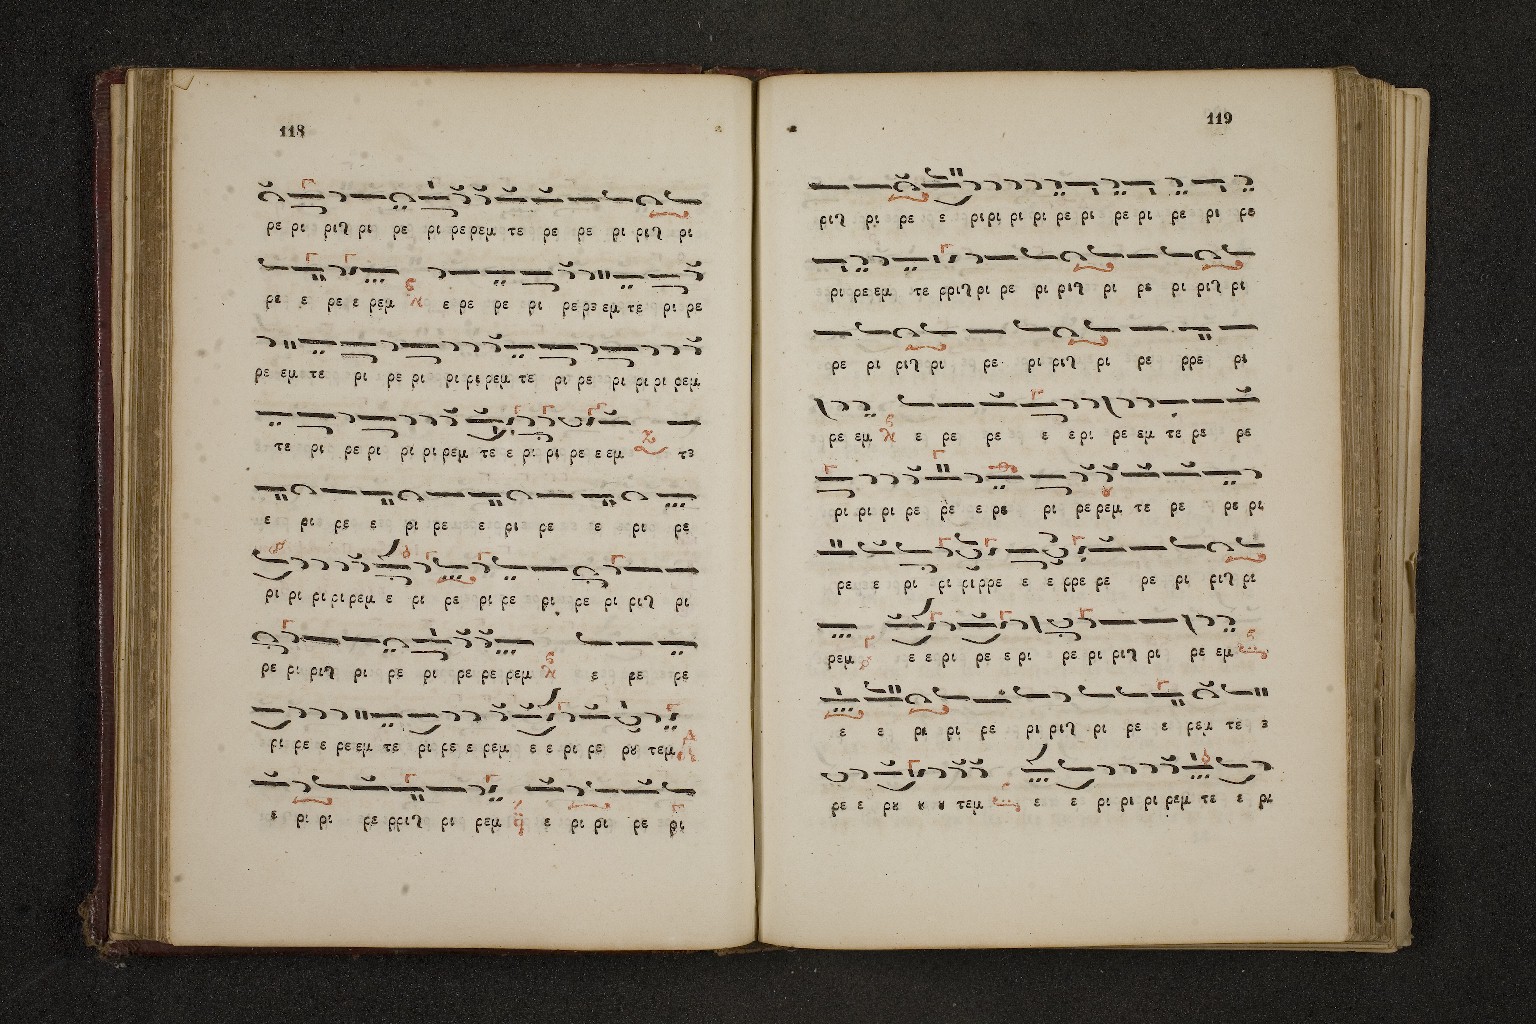 118
ρε ρι ριϛ ρι ρε ρι ρε ρεμ τε ρε ρε ρι ριϛ ρι
ρε ε ρε ε ρεμ ε ρε ρε ρι ρε ρε εμ τε ρι ρε
ρε εμ τε ρι ρε ρι ρι ρι ρεμ τε ρι ρε ρι ρι ρι ρεμ
τε ρι ρε ρι ρι ρι ρεμ τε ε ρι ρι ρε ε εμ τε
ε ρι ρε ε ρι ρε ε ρι ρε ε ρι ρε
ρι ρι ρι ρι ρεμ ε ρι ρε ρι ρε ρι ρε ρι ριϛ ρι
ρε ρι ριϛ ρι ρε ρι ρε ρε ρεμ ε ρε ρε
ρι ρε ε ρε εμ τε ρι ρε ε ρεμ ε ε ρι ρε ρȣ τεμ
ε ρι ρι ρε ρριϛ ρι ρεμ ε ρι ρι ρε ρι
119
ριϛ ρι ρε ε ρι ρι ρι ρι ρε ρι ρε ρι ρε ρι ρε
ρι ρε εμ τε ρριϛ ρι ρε ρι ριϛ ρι ρε ρι ριϛ ρι
ρε ρι ριϛ ρι ρε ρι ριϛ ρι ρε ρρε ρι
ρε εμ ε ρε ρε ε ε ρι ρε εμ τε ρε ρε
ρι ρι ρι ρε ρε ε ρε ρι ρε ρεμ τε ρε ρε ρι
ρε ε ρι ρι ρι ρρε ε ε ρρε ρε ρε ρι ριϛ ρι
ρεμ ε ε ρι ρε ε ρι ρε ρι ριϛ ρι ρε εμ
ε ε ρι ρι ρε ρι ριϛ ρι ρε ε ρεμ τε ε
ρε ε ρȣ ȣ ȣ τεμ ε ε ρι ρι ρι ρεμ τε ε ρι